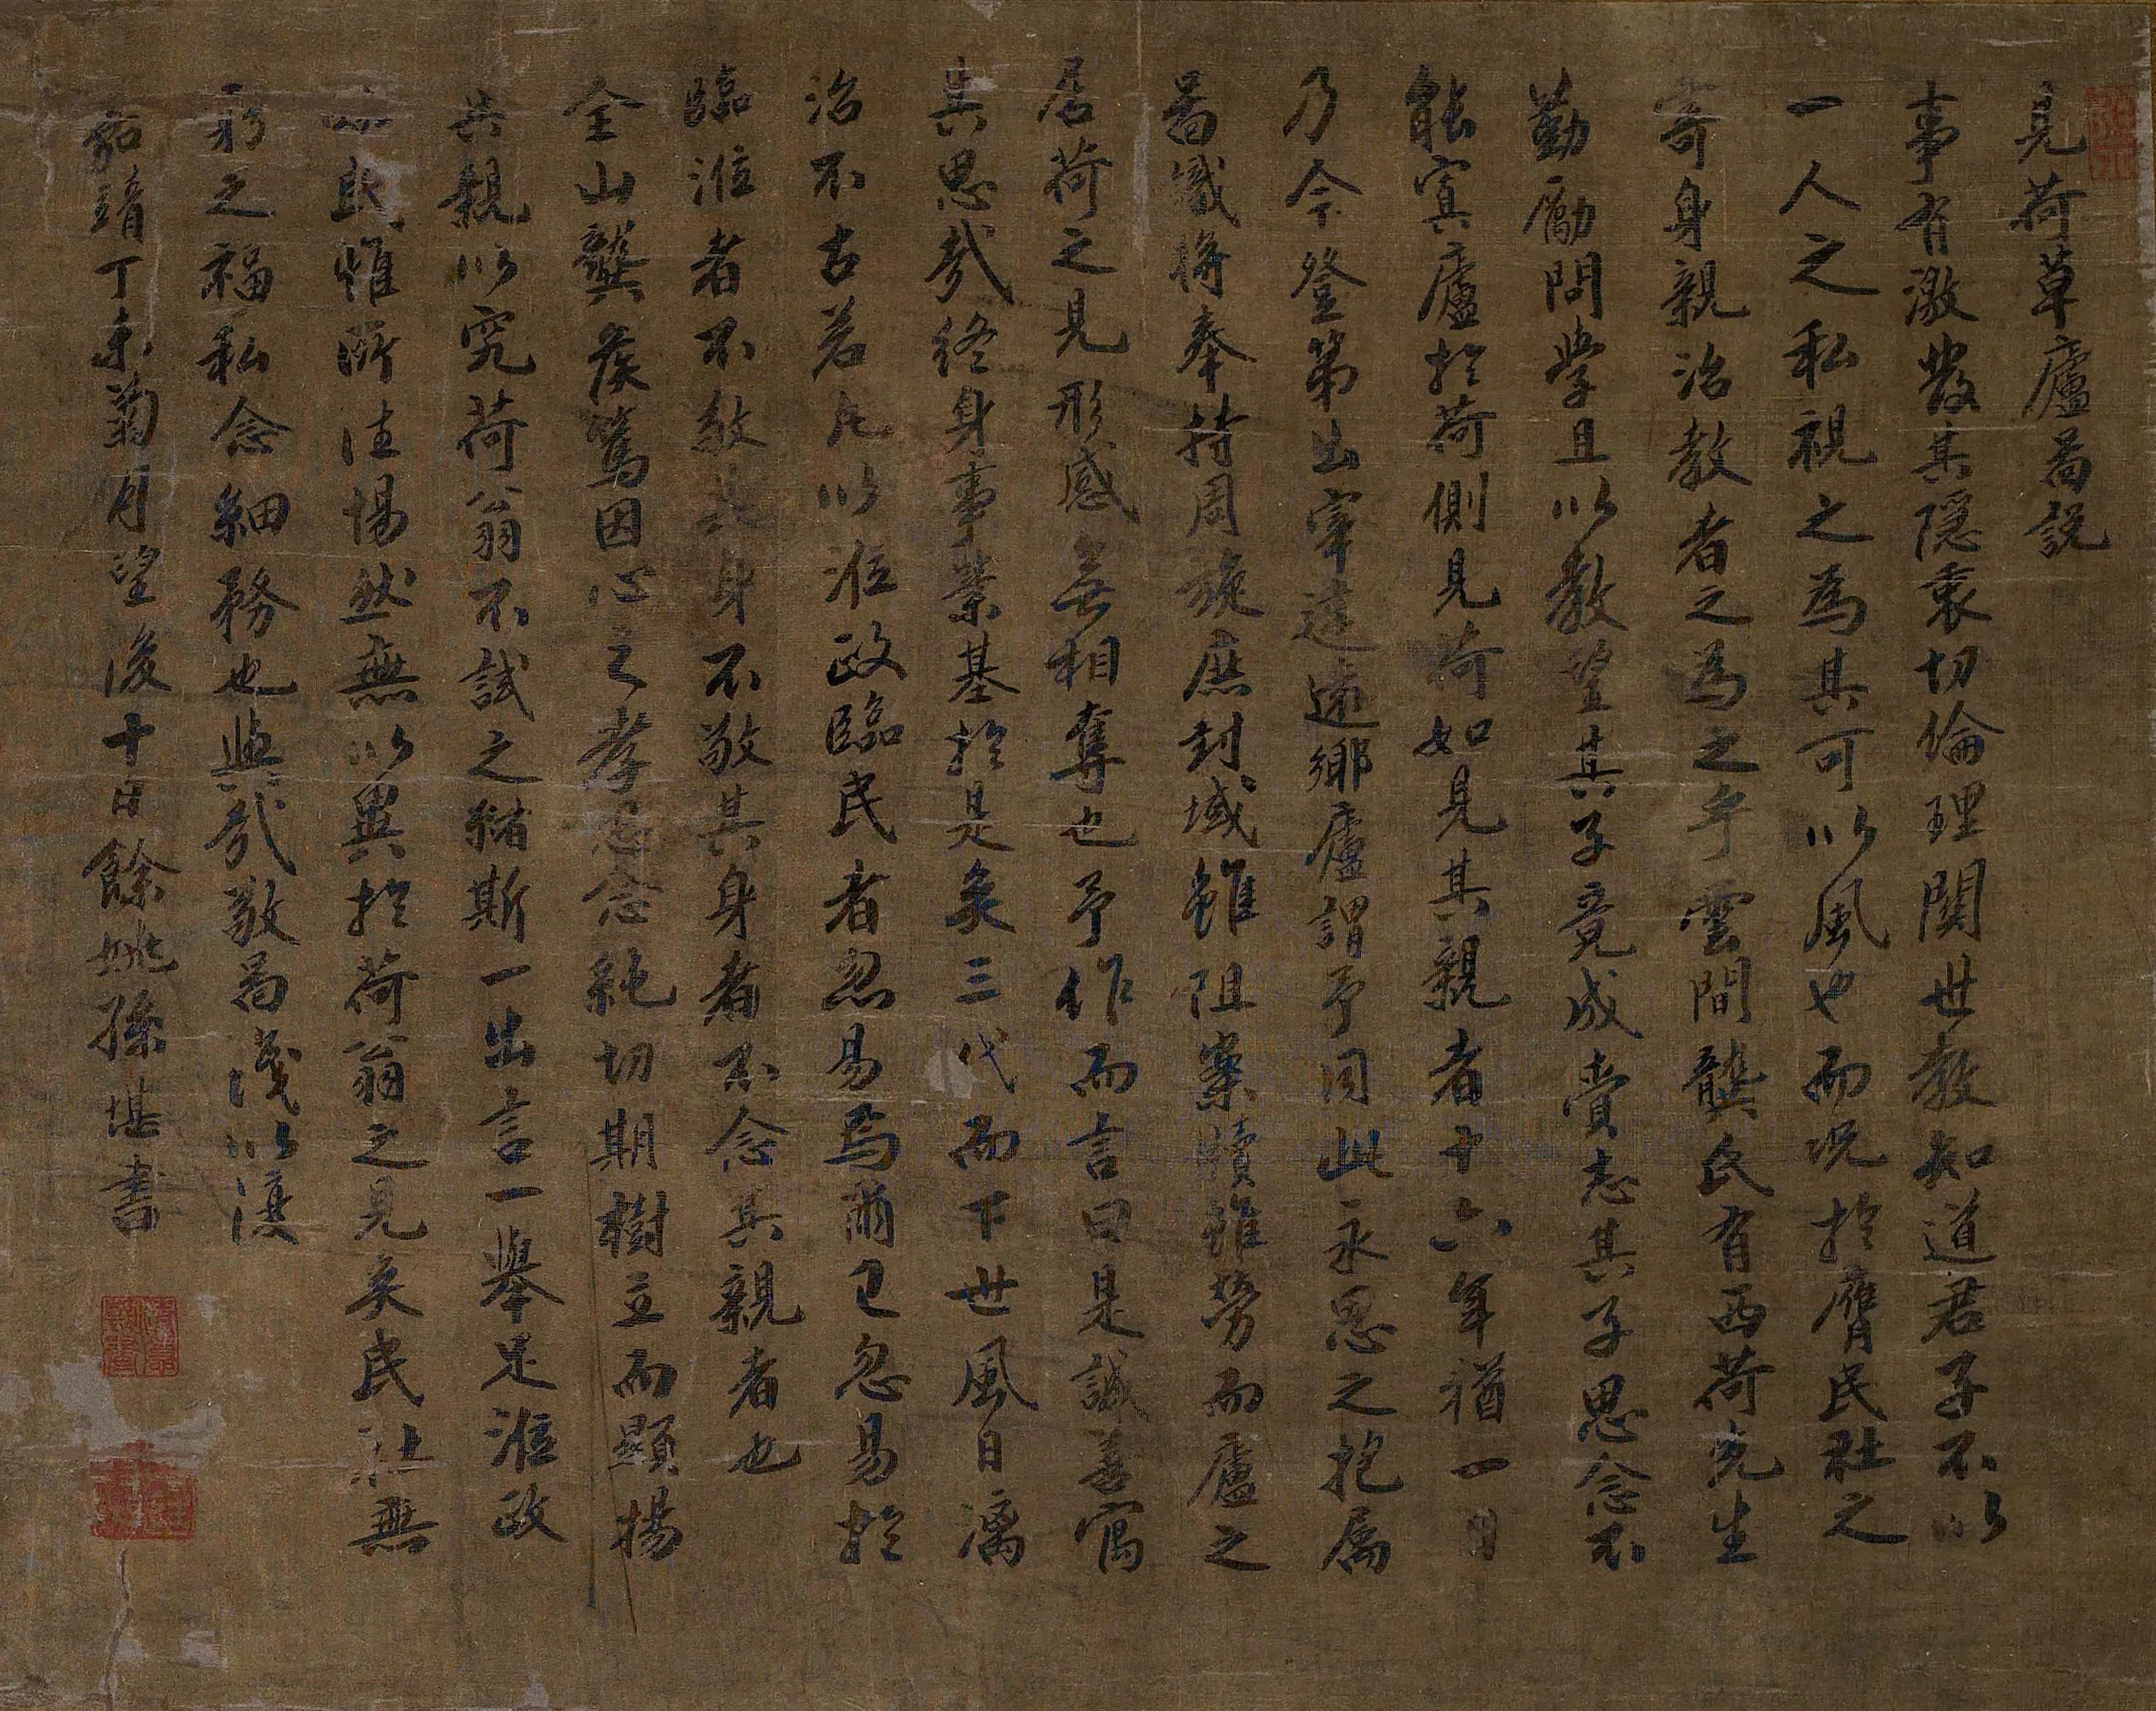 見荷草廬啚説
事有激發其隱衷切倫理関世教知道君子不以
一人之私視之為其可以風也而况於膺民社之
寄身親治教者之為之乎雲間龔氏有西荷先生
勤勵問學且以教望其子竟成賫志其子思念不
能寘廬於荷側見荷如見其親者十六年猶一日
乃今登第出宰遠違鄉廬謂予同此永思之抱属
啚識将奉持周旋庶封域雖阻案牘雖勞而廬之
居荷之見形感無相奪也予作而言曰是誠善寓
其思哉終身事業基於是矣三代而下世風日漓
治不古若凡以涖政臨民者忽易焉爾已忽易於
臨涖者不敬其身不敬其身者不念其親者也
全山龔侯篤因心之孝思念純切期樹立而顯揚
其親以究荷翁不試之緒斯一出言一舉足涖政
臨民惟所徃惕然無以異於荷翁之見矣民社無
彊之福私念細務也與哉敬啚淺以復
嘉靖丁未菊月望後十日餘姚孫堪書